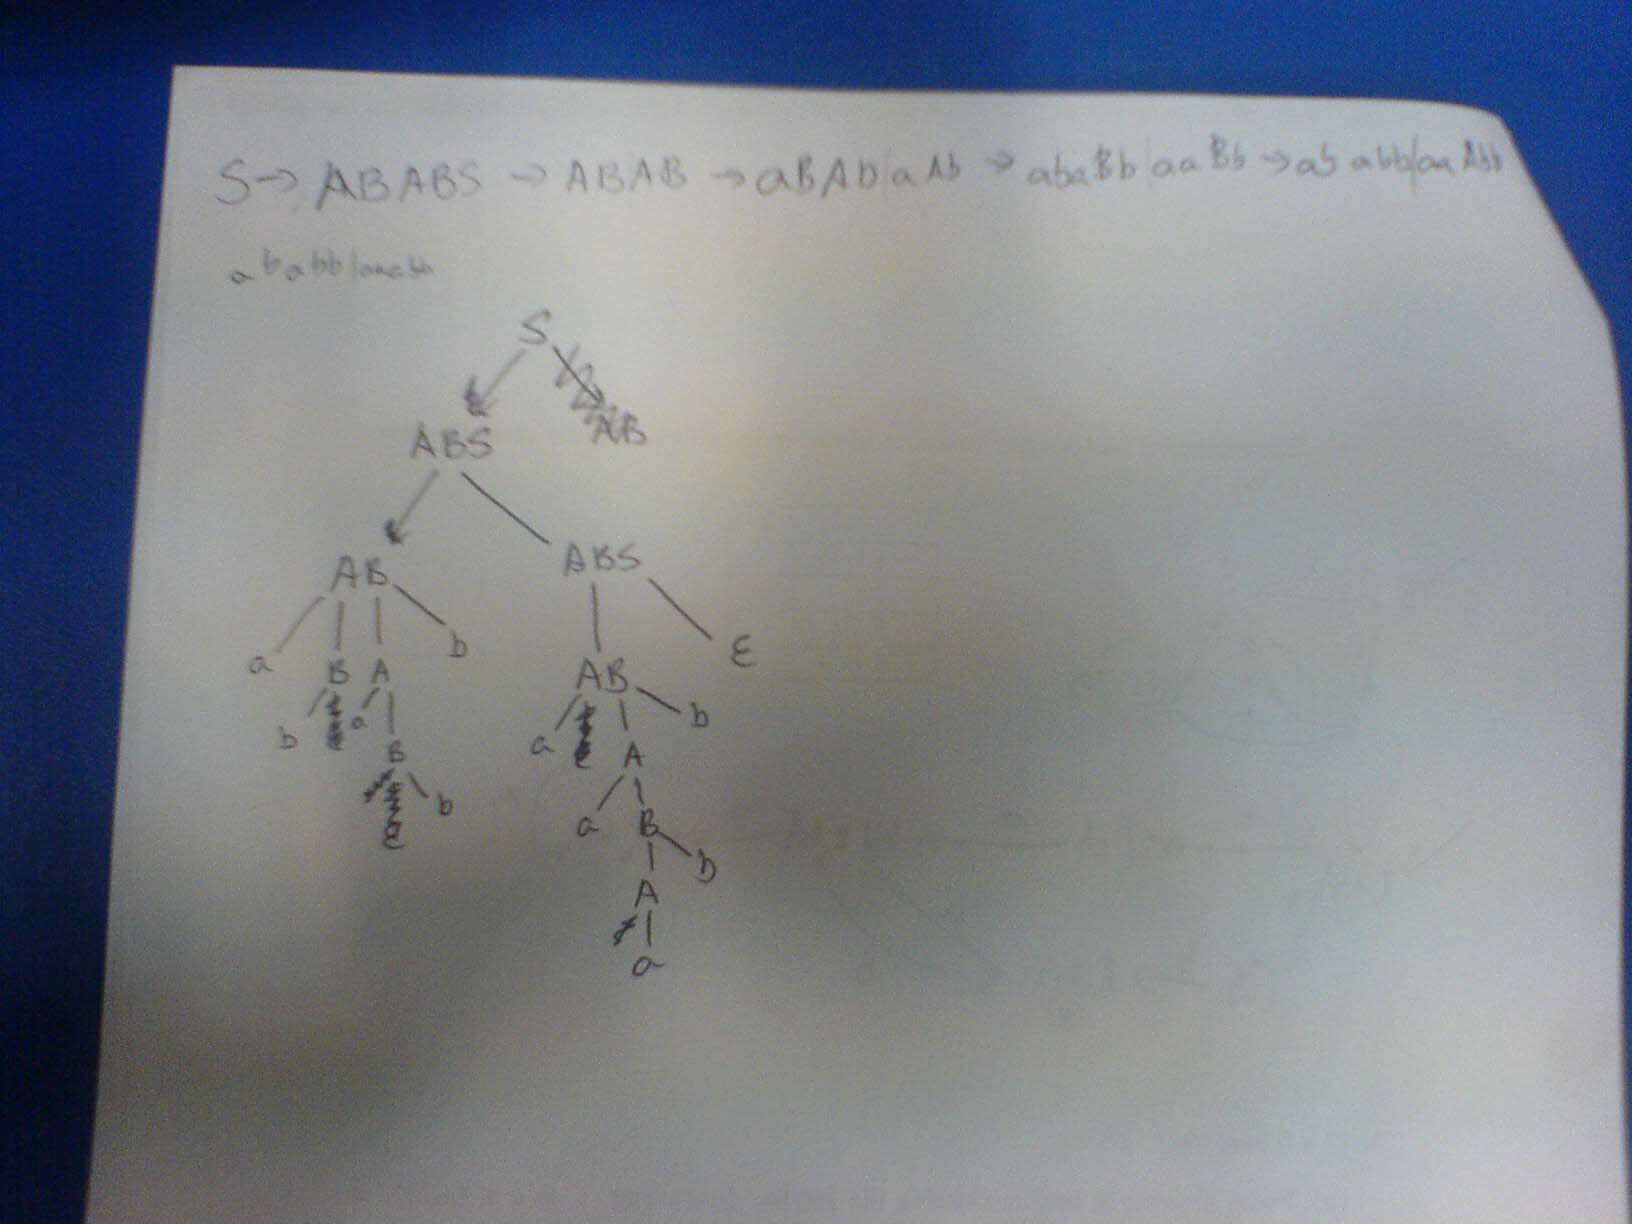 S → ABABS → ABAB → aBAb|aAb → abaBb|aaBb → ababb|aaAbb
ababb|aaabb
S
ABS AB
AB ABS
a B A b AB ε
b a B a A b
b a B b
ε A
a